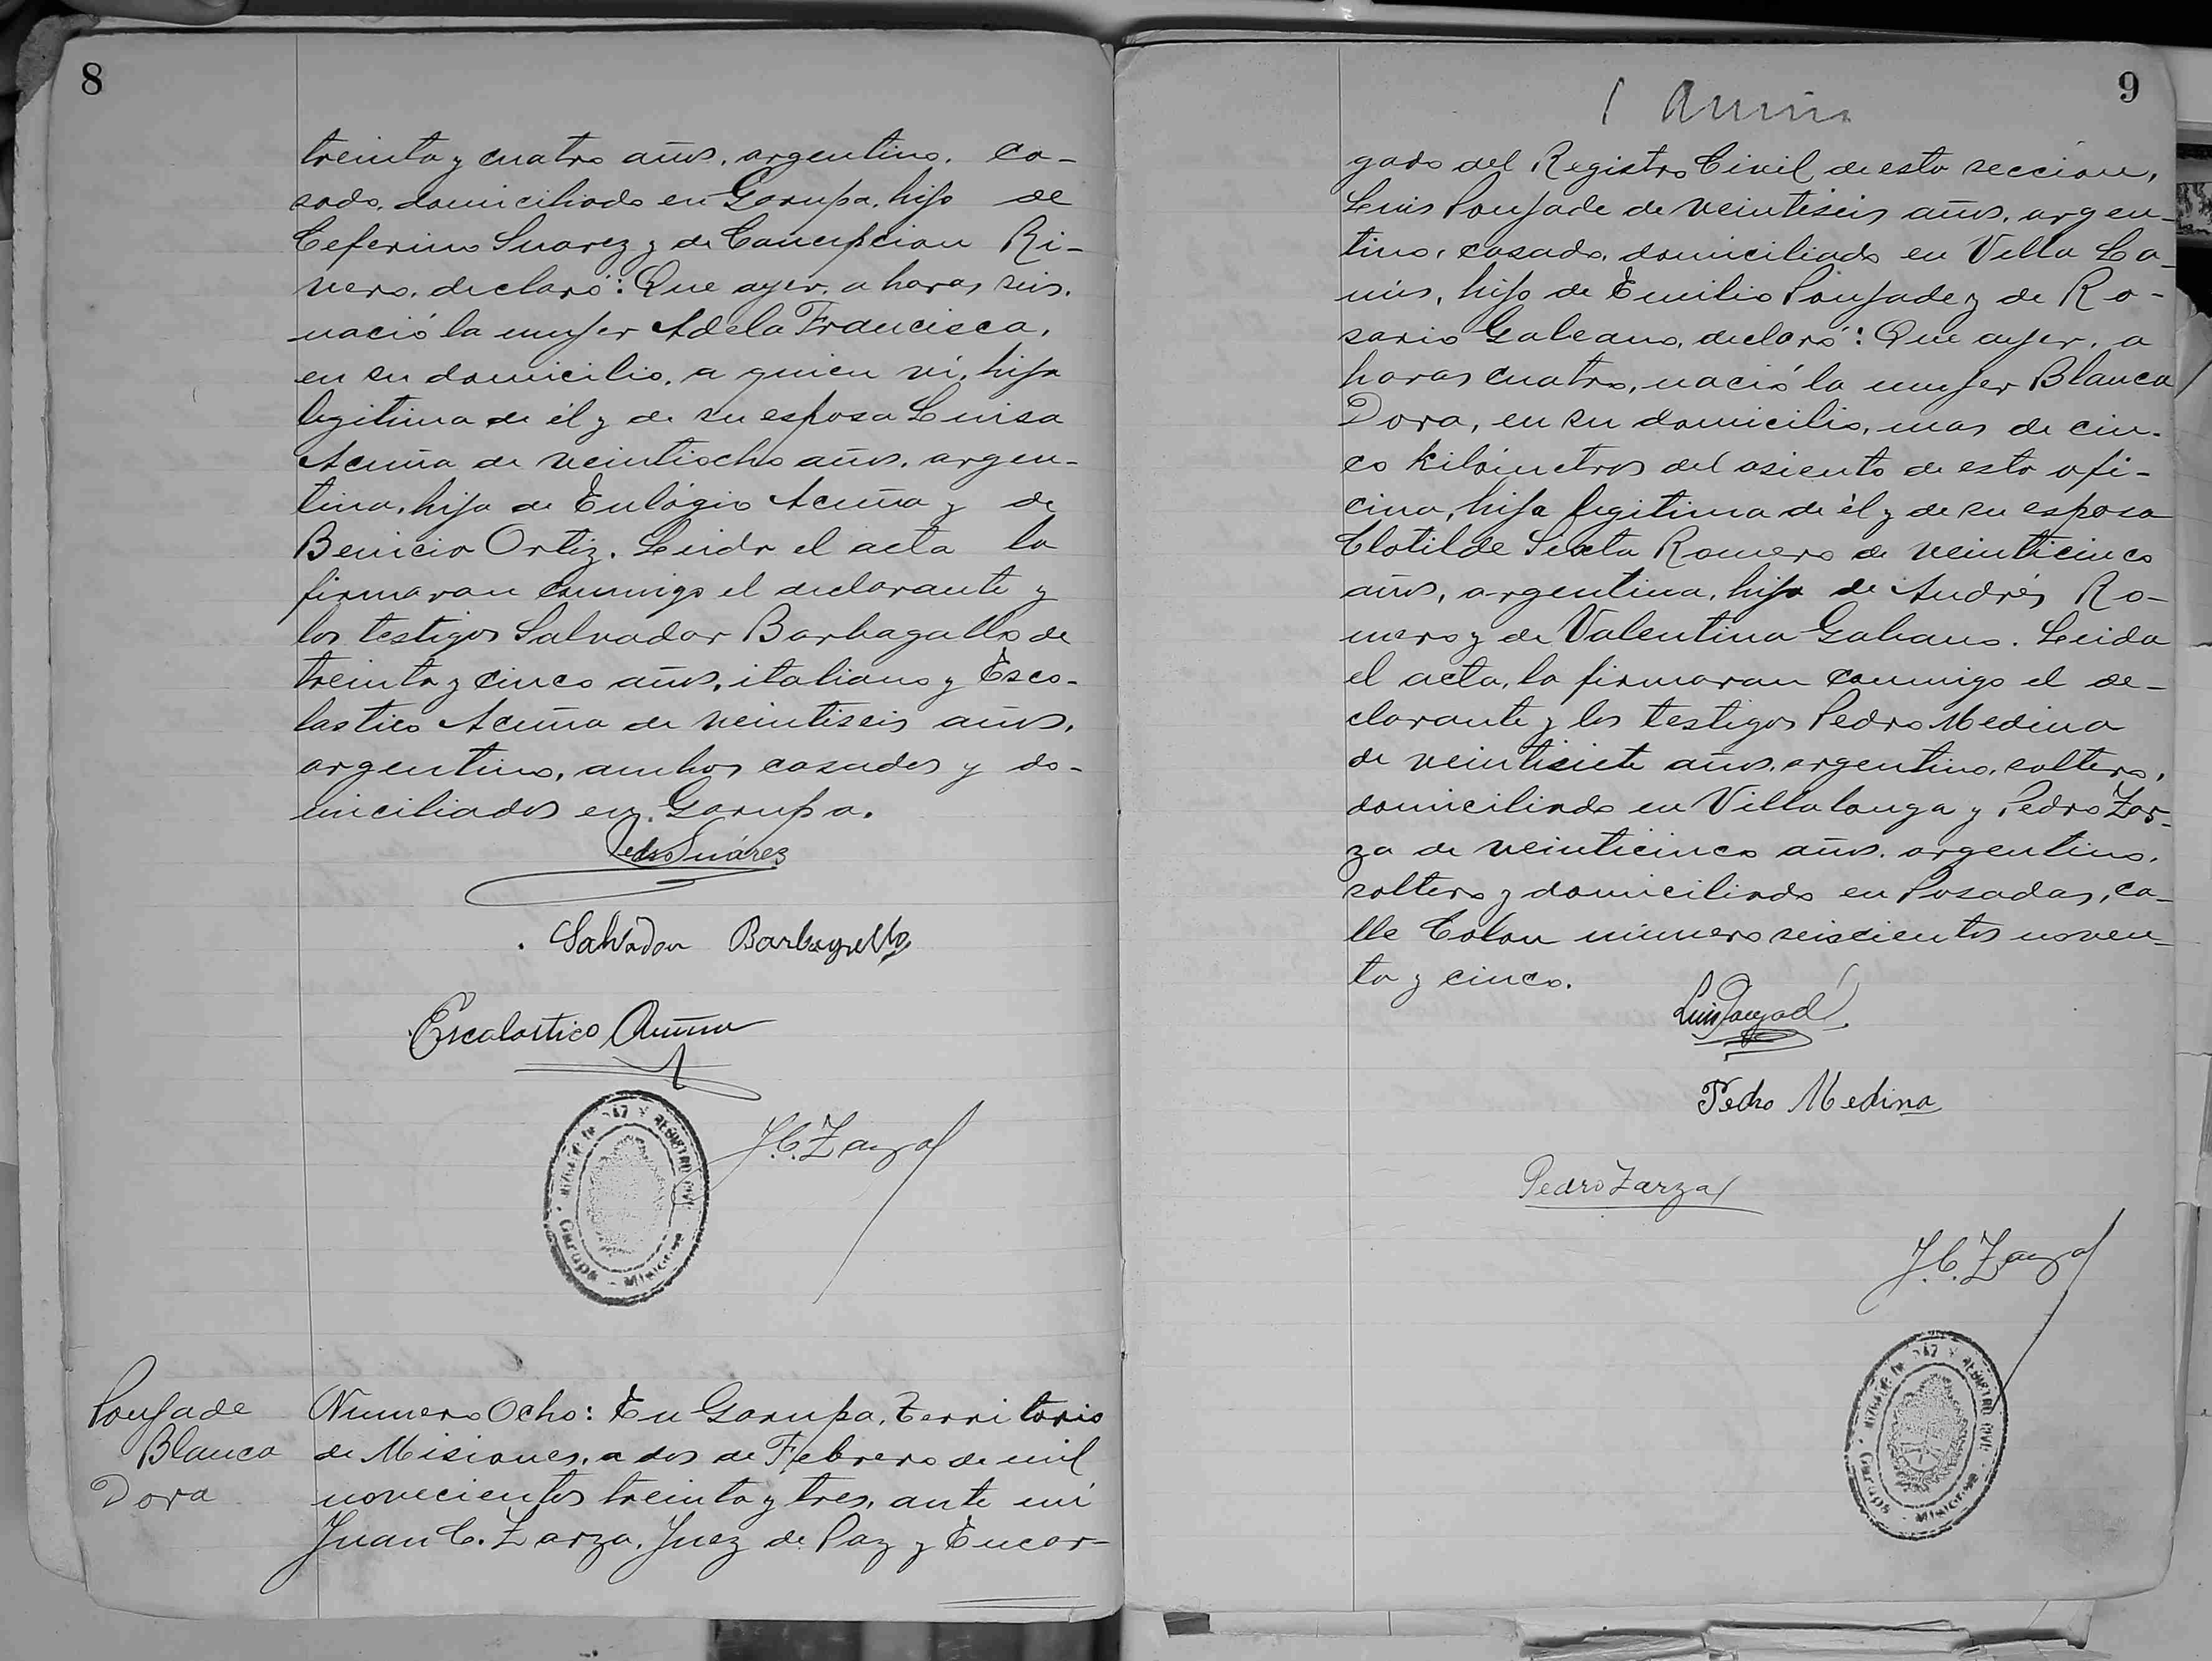 8
treinta y cuatro años, argentino, ca-
sado, domiciliado en Garupa, hijo de
Ceferino Suarez y de Concepcion Ri-
vero, declaró: Que ayer, a horas seis,
nació la mujer Adela Francisca,
en su domicilio, a quien ví, hija
legitima de él y de su esposa Luisa
Acuña de veintiocho años, argen-
tina, hija de Eulógio Acuña y de
Benicia Ortiz. Leida el acta la
firmaran conmigo el declarante y
los testigos Salvador Barbagallo de
treinta y cinco años, italiano y Esco-
lastico Acuña de veintiseis años,
argentino, ambos casados y do-
miciliados en Garupa.
Pedro Suárez
Salvador Barbagallo
Escolastico Acuña
J. C. Zarza
JUZGADO DE PAZ Y REGISTRO CIVIL
Garupá - Misiones
Poujade
Blanca
Dora
Numero Ocho: En Garupa, Territorio
de Misiones, a dos de Febrero de mil
novecientos treinta y tres, ante mi
Juan C. Zarza, Juez de Paz y Encar-
9
gado del Registro Civil de esta seccion,
Luis Poujade de veintiseis años, argen-
tino, casado, domiciliado en Villa La-
nús, hijo de Emilio Poujade y de Ro-
sario Galeano, declaró: Que ayer, a
horas cuatro, nació la mujer Blanca
Dora, en su domicilio, mas de cin-
co kilómetros del asiento de esta ofi-
cina, hija legitima de él y de su esposa
Clotilde Sixta Romero de veinticinco
años, argentina, hija de Andrés Ro-
mero y de Valentina Galeano. Leida
el acta, la firmaran conmigo el de-
clarante y los testigos Pedro Medina
de veintisiete años, argentino, soltero,
domiciliado en Villalonga y Pedro Zar-
za de veinticinco años, argentino,
soltero y domiciliado en Posadas, ca-
lle Colon número seiscientos noven-
ta y cinco.
Luis Poujade
Pedro Medina
Pedro Zarza
J. C. Zarza
JUZGADO DE PAZ Y REGISTRO CIVIL
Garupá - Misiones